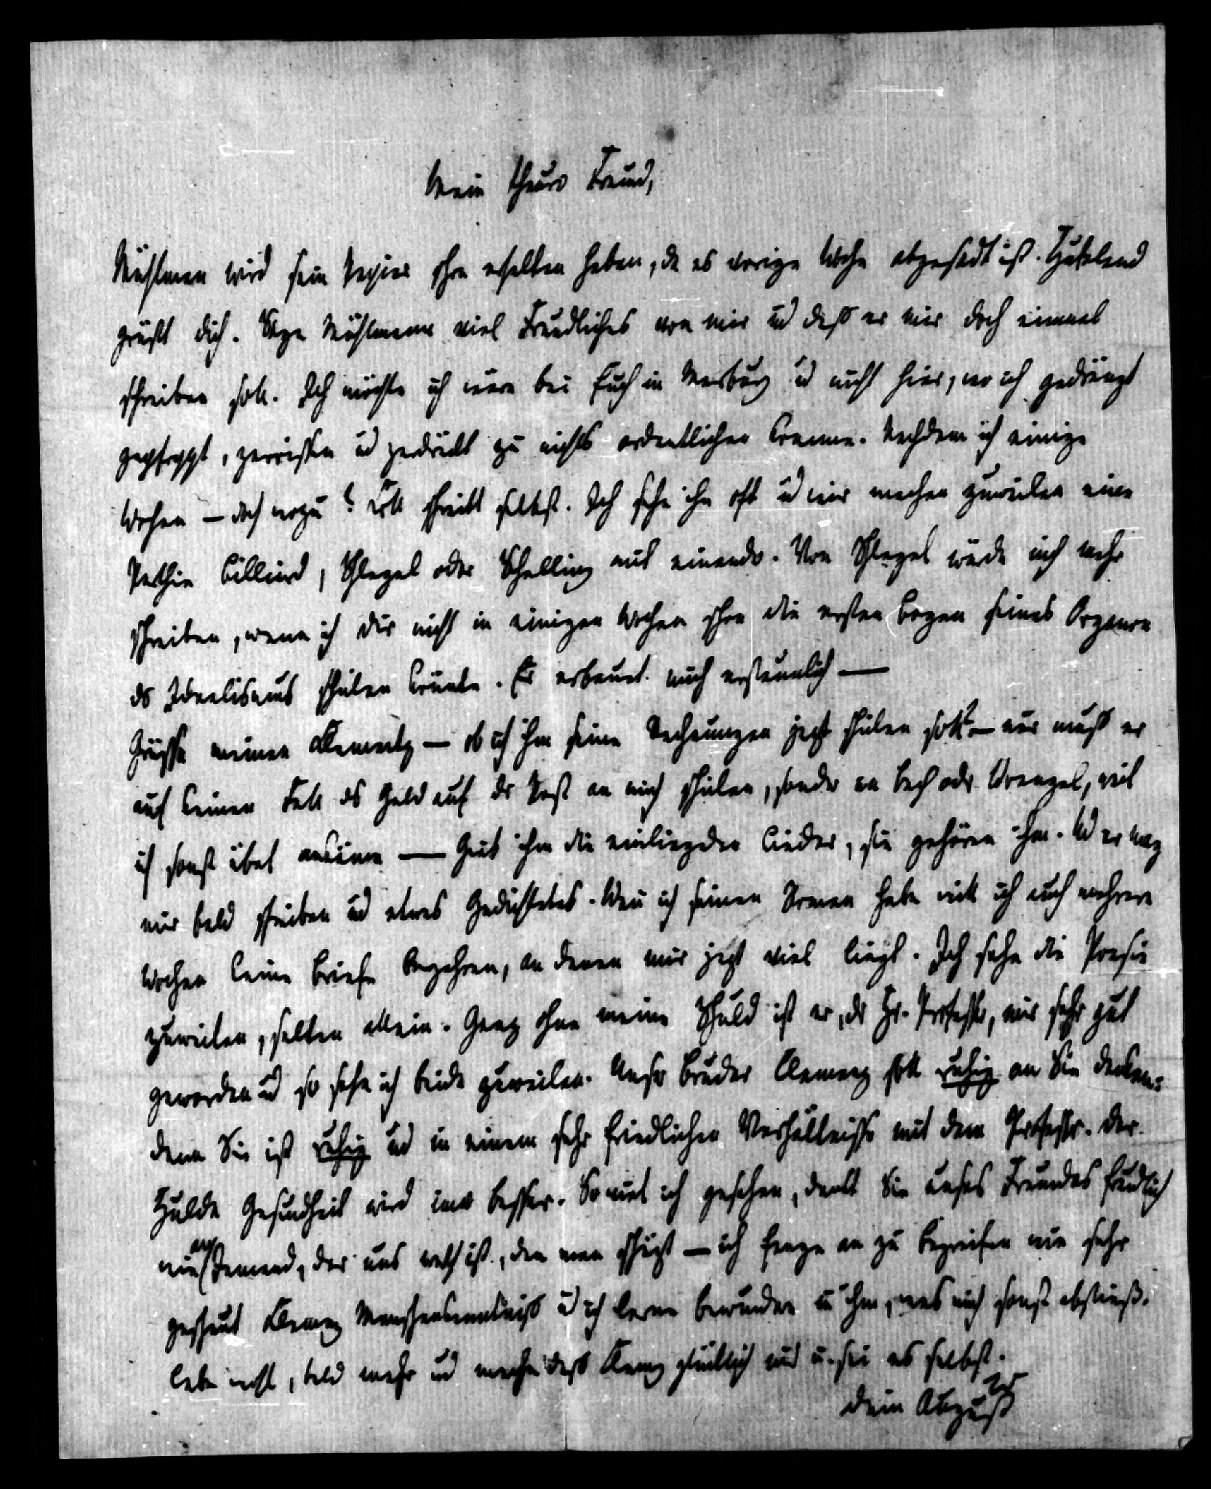 Mein theurer Freund,
wird sein Papier schon erhalten haben, da es vorige Woche abgeschickt ist. Hufeland
grüßt dich. Sage viel Freundliches von mir und daß er mir doch einmal
schreiben soll. Ich möchte ich wäre bei Euch in Marburg und nicht hier, wo ich gedrängt
gepfropft, zerrissen und gedrückt zu nichts ordentlichen komme. Nachdem ich einige
Wochen — doch wozu? schreibt selbst. Ich sehe ihn oft und wir machen zuweilen eine
Parthie Billiard, Schlegel oder Schelling mit einander. Von Schlegel würde ich mehr
schreiben, wenn ich dir nicht in einigen Wochen schon die ersten Bogen seines Organon
des Idealismus schicken könnte. Er erbaut mich erstaunlich —
Grüsse meinen Klementz — ob ich ihm seine Rechnungen jezt schicken soll? — nur muß er
auf keinen Fall das Geld auf der Post an mich schicken, sondern an oder Wrangel, weil
ich sonst übel ankäme — Gieb ihm die einliegenden Lieder, sie gehören ihm. Und er mag
mir bald schreiben und etwas Gedichtetes. Wenn ich seinen Roman habe will ich auch mehrere
Wochen keine Briefe begehren, an denen mir jezt viel liegt. Ich sehe die Poesie
zuweilen, selten allein. Ganz ohne meine Schuld ist er, der Hr. Professor, mir sehr gut
geworden und so sehe ich beide zuweilen. Unser Bruder Klemenz soll ruhig an Sie denken:
denn Sie ist ruhig und in einem sehr friedlichen Verhältnisse mit dem Professor. Der
Hulda Gesundheit wird immer besser. So viel ich gesehen, denkt Sie unsres Freundes freundlich
wie an Jemand, der uns werth ist, den man schäzt — ich fange an zu begreifen wie sehr
gescheut Klemenz Menschenkenntniß und ich lerne bewundern an ihm, was mich sonst abstieß.
Lebe wohl, bald mehr und mache daß Klemenz glücklich wird u. sei es selbst.
Dein August